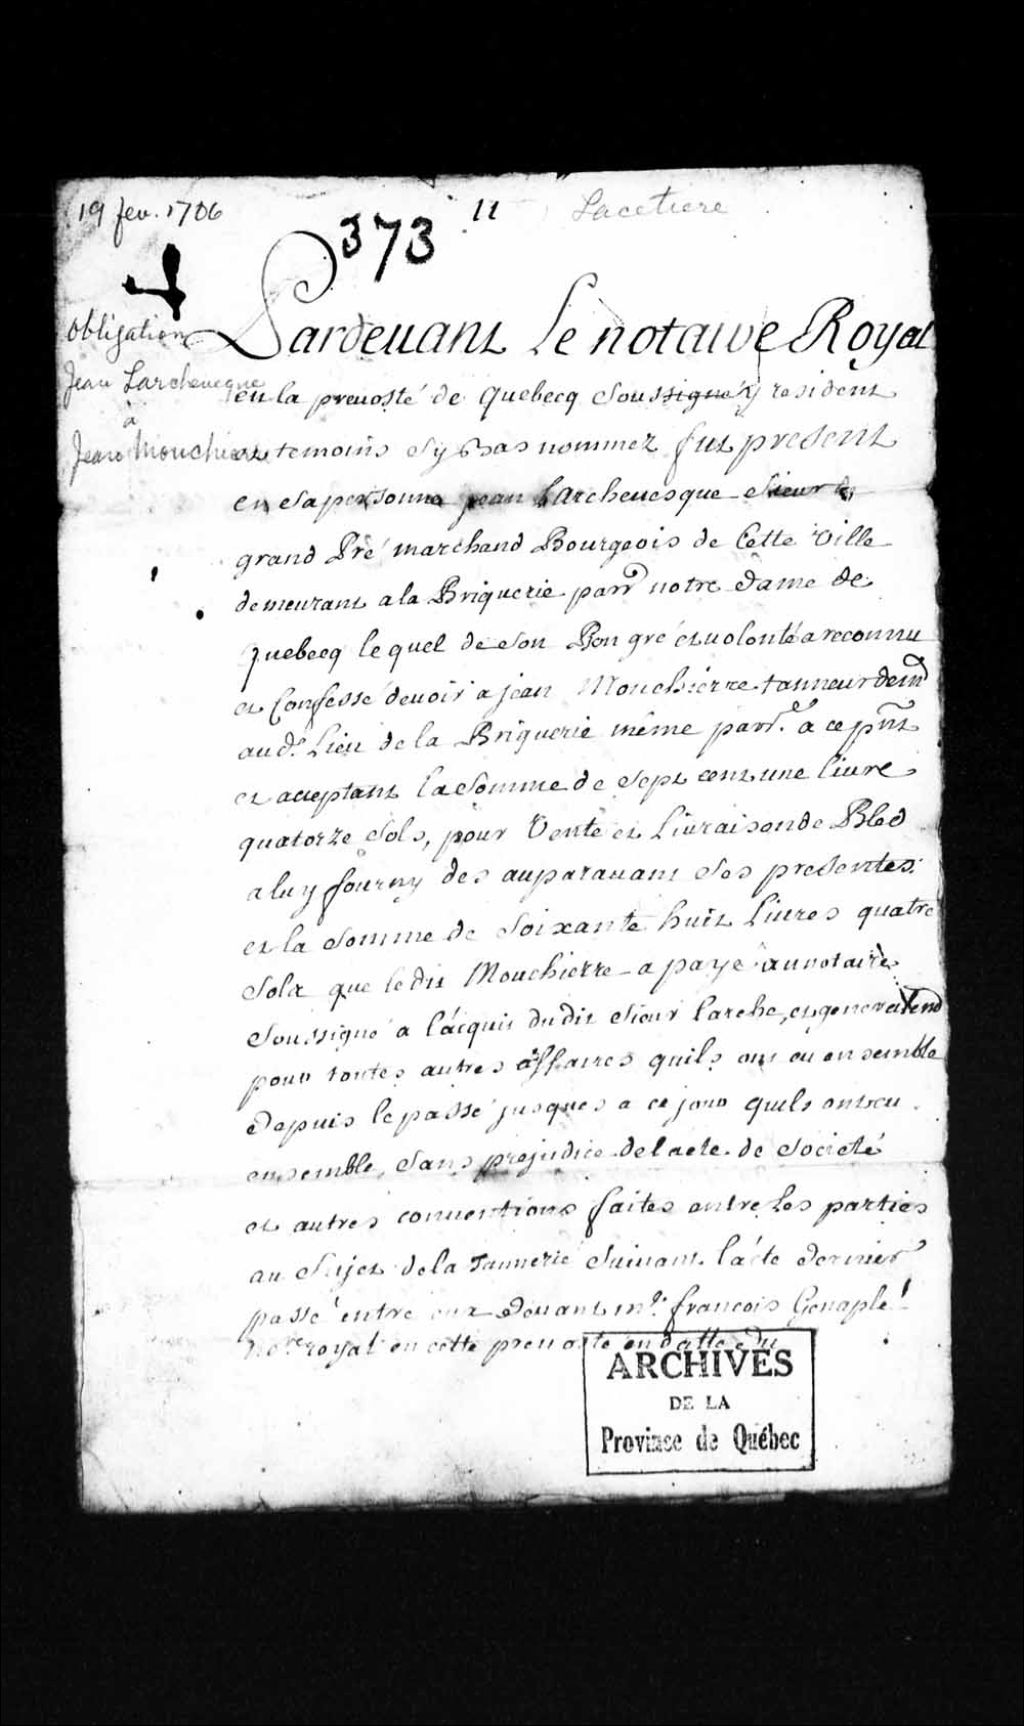 19 fev. 1706
373
11
Lacetiere
Obligation
Jean Larchevesque
à
Jean Mouchiere
Pardeuant Le notaire Royal
en la preuosté de quebecq soussigné y resident
et temoins sy bas nommez fut present
en sa personne jean Larcheuesque sieur de
grand Pré marchand Bourgeois de Cette Ville
demeurant a la Briquerie parr notre dame de
quebecq lequel de son Bon gré et uolonté a reconnu
et Confessé deuoir a jean Mouchierre tanneur dem
aud. Lieu de la Briquerie même parr. a ce pnt
et acceptant La somme de sept cent une liure
quatorze sols, pour Vente et Liuraison de Bled
a luy fourny des auparauant ses presentes.
et la somme de soixante huit Liures quatre
sols que le dit Mouchierre a payé au notaire
soussigné a l'acquit dudit sieur Larche, et generalemd
pour toutes autres affaires quils ont eu ensemble
depuis le passé jusques a ce jour quils ont eu
ensemble, sans prejudice de l'acte de societé
et autres conuentions faites entre Les parties
au sujet de la Tannerie suiuant l'acte dernier
passé entre eux deuant me. francois Genaple
no.re royal en cette preuosté en datte du
ARCHIVES
DE LA
Province de Québec